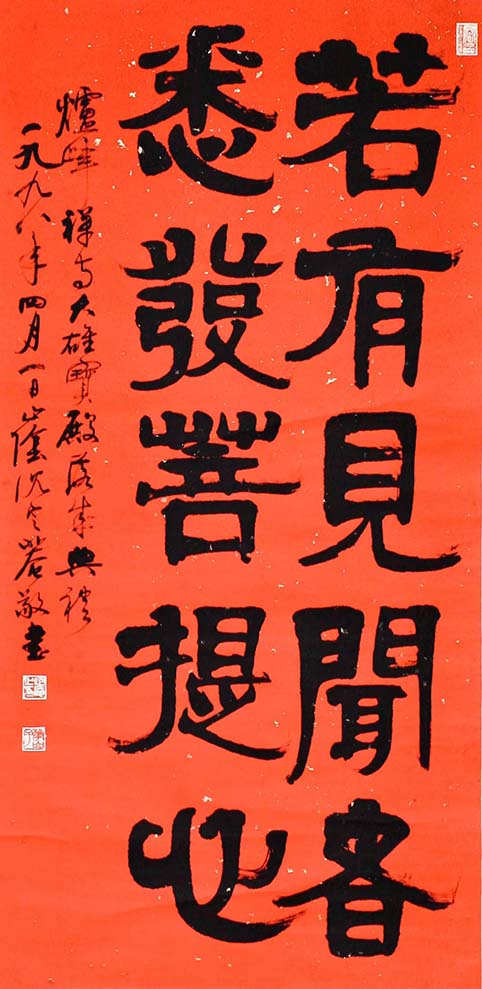 若有見聞者
悉發菩提心
爐峰禪寺大雄寶殿落成典禮
一九九八年四月一日 沈定菴敬書